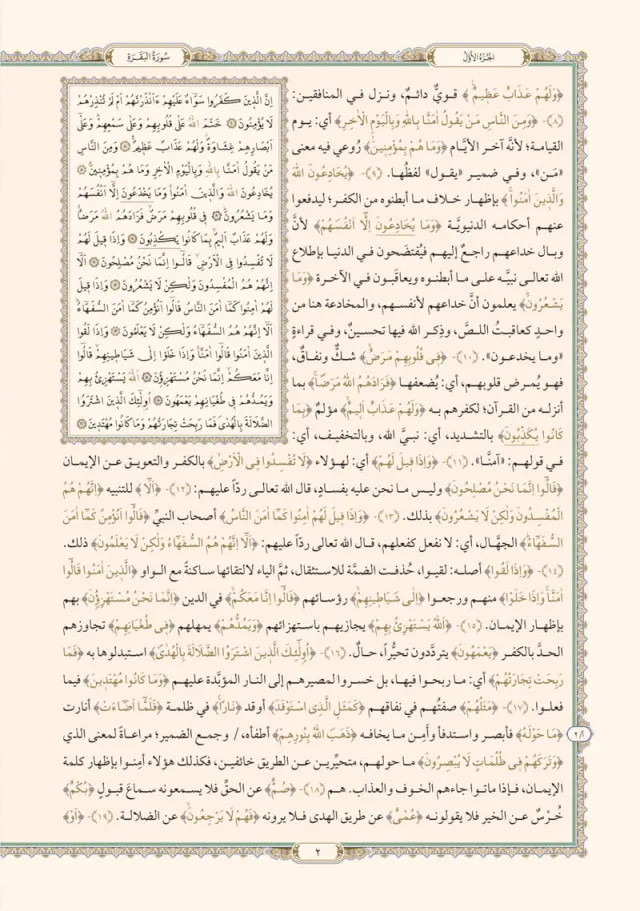 الجزء الأول
سورة البقرة
إِنَّ الَّذِينَ كَفَرُوا سَوَاءٌ عَلَيْهِمْ ءَأَنْذَرْتَهُمْ أَمْ لَمْ تُنْذِرْهُمْ
لَا يُؤْمِنُونَ ۝ خَتَمَ اللهُ عَلَى قُلُوبِهِمْ وَعَلَى سَمْعِهِمْ وَعَلَى
أَبْصَارِهِمْ غِشَاوَةٌ وَلَهُمْ عَذَابٌ عَظِيمٌ ۝ وَمِنَ النَّاسِ
مَنْ يَقُولُ آمَنَّا بِاللهِ وَبِالْيَوْمِ الْآخِرِ وَمَا هُمْ بِمُؤْمِنِينَ ۝
يُخَادِعُونَ اللهَ وَالَّذِينَ آمَنُوا وَمَا يَخْدَعُونَ إِلَّا أَنْفُسَهُمْ
وَمَا يَشْعُرُونَ ۝ فِي قُلُوبِهِمْ مَرَضٌ فَزَادَهُمُ اللهُ مَرَضًا
وَلَهُمْ عَذَابٌ أَلِيمٌ بِمَا كَانُوا يَكْذِبُونَ ۝ وَإِذَا قِيلَ لَهُمْ
لَا تُفْسِدُوا فِي الْأَرْضِ قَالُوا إِنَّمَا نَحْنُ مُصْلِحُونَ ۝ أَلَا
إِنَّهُمْ هُمُ الْمُفْسِدُونَ وَلَكِنْ لَا يَشْعُرُونَ ۝ وَإِذَا قِيلَ
لَهُمْ آمِنُوا كَمَا آمَنَ النَّاسُ قَالُوا أَنُؤْمِنُ كَمَا آمَنَ السُّفَهَاءُ
أَلَا إِنَّهُمْ هُمُ السُّفَهَاءُ وَلَكِنْ لَا يَعْلَمُونَ ۝ وَإِذَا لَقُوا
الَّذِينَ آمَنُوا قَالُوا آمَنَّا وَإِذَا خَلَوْا إِلَى شَيَاطِينِهِمْ قَالُوا
إِنَّا مَعَكُمْ إِنَّمَا نَحْنُ مُسْتَهْزِؤُنَ ۝ اللهُ يَسْتَهْزِئُ بِهِمْ
وَيَمُدُّهُمْ فِي طُغْيَانِهِمْ يَعْمَهُونَ ۝ أُولَئِكَ الَّذِينَ اشْتَرَوُا
الضَّلَالَةَ بِالْهُدَى فَمَا رَبِحَتْ تِجَارَتُهُمْ وَمَا كَانُوا مُهْتَدِينَ ۝
﴿وَلَهُمْ عَذَابٌ عَظِيمٌ﴾ قويٌّ دائمٌ، ونزل في المنافقين:
﴿٨﴾- ﴿وَمِنَ النَّاسِ مَنْ يَقُولُ آمَنَّا بِاللهِ وَبِالْيَوْمِ الْآخِرِ﴾ أي: يوم
القيامة؛ لأنَّه آخر الأيَّام ﴿وَمَا هُمْ بِمُؤْمِنِينَ﴾ رُوعي فيه معنى
«مَن»، وفي ضمير «يقول» لفظُها. ﴿٩﴾- ﴿يُخَادِعُونَ اللهَ
وَالَّذِينَ آمَنُوا﴾ بإظهار خلاف ما أبطنوه من الكفر؛ ليدفعوا
عنهم أحكامه الدنيويَّة ﴿وَمَا يُخَادِعُونَ إِلَّا أَنْفُسَهُمْ﴾ لأنَّ
وبال خداعهم راجعٌ إليهم فيُفتضَحون في الدنيا بإطلاع
الله تعالى نبيَّه على ما أبطنوه ويعاقَبون في الآخرة ﴿وَمَا
يَشْعُرُونَ﴾ يعلمون أنَّ خداعهم لأنفسهم، والمخادعة هنا من
واحدٍ كعاقبتُ اللصَّ، وذِكر الله فيها تحسينٌ، وفي قراءةٍ
«وما يخدعون». ﴿١٠﴾- ﴿فِي قُلُوبِهِمْ مَرَضٌ﴾ شكٌّ ونفاقٌ،
فهو يُمرض قلوبهم، أي: يُضعفها ﴿فَزَادَهُمُ اللهُ مَرَضًا﴾ بما
أنزله من القرآن؛ لكفرهم به ﴿وَلَهُمْ عَذَابٌ أَلِيمٌ﴾ مؤلمٌ ﴿بِمَا
كَانُوا يُكَذِّبُونَ﴾ بالتشديد، أي: نبيَّ الله، وبالتخفيف، أي:
في قولهم: «آمنَّا». ﴿١١﴾- ﴿وَإِذَا قِيلَ لَهُمْ﴾ أي: لهؤلاء ﴿لَا تُفْسِدُوا فِي الْأَرْضِ﴾ بالكفر والتعويق عن الإيمان
﴿قَالُوا إِنَّمَا نَحْنُ مُصْلِحُونَ﴾ وليس ما نحن عليه بفسادٍ، قال الله تعالى ردًّا عليهم: ﴿١٢﴾- ﴿أَلَا﴾ للتنبيه ﴿إِنَّهُمْ هُمُ
الْمُفْسِدُونَ وَلَكِنْ لَا يَشْعُرُونَ﴾ بذلك. ﴿١٣﴾- ﴿وَإِذَا قِيلَ لَهُمْ آمِنُوا كَمَا آمَنَ النَّاسُ﴾ أصحاب النبيِّ ﴿قَالُوا أَنُؤْمِنُ كَمَا آمَنَ
السُّفَهَاءُ﴾ الجهَّال، أي: لا نفعل كفعلهم، قال الله تعالى ردًّا عليهم: ﴿أَلَا إِنَّهُمْ هُمُ السُّفَهَاءُ وَلَكِنْ لَا يَعْلَمُونَ﴾ ذلك.
﴿١٤﴾- ﴿وَإِذَا لَقُوا﴾ أصله: لقيوا، حُذفت الضمَّة للاستثقال، ثمَّ الياء لالتقائها ساكنةً مع الواو ﴿الَّذِينَ آمَنُوا قَالُوا
آمَنَّا وَإِذَا خَلَوْا﴾ منهم ورجعوا ﴿إِلَى شَيَاطِينِهِمْ﴾ رؤسائهم ﴿قَالُوا إِنَّا مَعَكُمْ﴾ في الدين ﴿إِنَّمَا نَحْنُ مُسْتَهْزِؤُنَ﴾ بهم
بإظهار الإيمان. ﴿١٥﴾- ﴿اللهُ يَسْتَهْزِئُ بِهِمْ﴾ يجازيهم باستهزائهم ﴿وَيَمُدُّهُمْ﴾ يمهلهم ﴿فِي طُغْيَانِهِمْ﴾ تجاوزهم
الحدَّ بالكفر ﴿يَعْمَهُونَ﴾ يتردَّدون تحيُّرًا، حالٌ. ﴿١٦﴾- ﴿أُولَئِكَ الَّذِينَ اشْتَرَوُا الضَّلَالَةَ بِالْهُدَى﴾ استبدلوها به ﴿فَمَا
رَبِحَتْ تِجَارَتُهُمْ﴾ أي: ما ربحوا فيها، بل خسروا لمصيرهم إلى النار المؤبَّدة عليهم ﴿وَمَا كَانُوا مُهْتَدِينَ﴾ فيما
فعلوا. ﴿١٧﴾- ﴿مَثَلُهُمْ﴾ صفتُهم في نفاقهم ﴿كَمَثَلِ الَّذِي اسْتَوْقَدَ﴾ أوقد ﴿نَارًا﴾ في ظلمة ﴿فَلَمَّا أَضَاءَتْ﴾ أنارت
﴿مَا حَوْلَهُ﴾ فأبصر واستدفأ وأَمِن ما يخافه ﴿ذَهَبَ اللهُ بِنُورِهِمْ﴾ أطفأه، / وجمع الضمير؛ مراعاةً لمعنى الذي
٢/أ
﴿وَتَرَكَهُمْ فِي ظُلُمَاتٍ لَا يُبْصِرُونَ﴾ ما حولهم، متحيِّرين عن الطريق خائفين، فكذلك هؤلاء أمِنوا بإظهار كلمة
الإيمان، فإذا ماتوا جاءهم الخوف والعذاب. هم ﴿١٨﴾- ﴿صُمٌّ﴾ عن الحقِّ فلا يسمعونه سماعَ قبولٍ ﴿بُكْمٌ﴾
خُرْسٌ عن الخير فلا يقولونه ﴿عُمْيٌ﴾ عن طريق الهدى فلا يرونه ﴿فَهُمْ لَا يَرْجِعُونَ﴾ عن الضلالة. ﴿١٩﴾- ﴿أَوْ﴾
٢